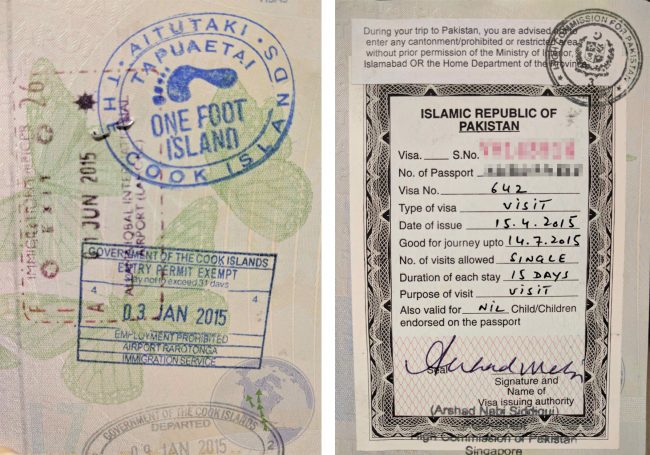 AITUTAKI
TAPUAETAI
ONE FOOT
ISLAND
COOK ISLANDS
IMMIGRATION OFFICER 26
EXIT
01 JUN 2015
GOVERNMENT OF THE COOK ISLANDS
ENTRY PERMIT EXEMPT
may not to exceed 31 days
4 4
03 JAN 2015
EMPLOYMENT PROHIBITED
AIRPORT RAROTONGA
IMMIGRATION SERVICE
GOVERNMENT OF THE COOK ISLANDS
DEPARTED
09 JAN 2015
2
During your trip to Pakistan, you are advised not to
enter any cantonment/prohibited or restricted area
without prior permission of the Ministry of Interior,
Islamabad OR the Home Department of the Province
COMMISSION FOR PAKISTAN
ISLAMIC REPUBLIC OF
PAKISTAN
Visa. S.No.
No. of Passport
Visa No. 642
Type of visa VISIT
Date of issue 15.4.2015
Good for journey upto 14.7.2015
No. of visits allowed SINGLE
Duration of each stay 15 DAYS
Purpose of visit VISIT
Also valid for NIL Child/Children
endorsed on the passport
Seal
Signature and
Name of
Visa issuing authority
(Arshad Nabi Siddiqui)
High Commission of Pakistan
Singapore